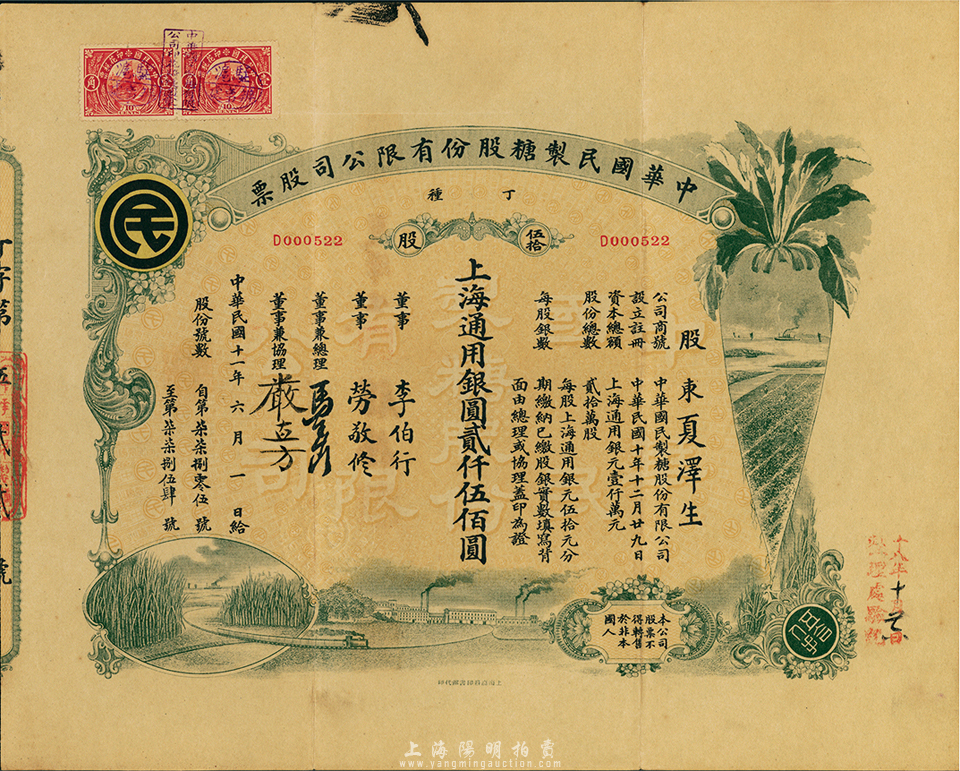 中華國民製糖股份有限公司股票
丁種
D000522
伍拾
股
D000522
股東夏澤生
公司商號 中華國民製糖股份有限公司
設立註冊 中華民國十年十二月廿九日
資本總額 上海通用銀元壹仟萬元
股份總數 貳拾萬股
每股銀數 每股上海通用銀元伍拾元分
期繳納已繳股銀實數填寫背
面由總理或協理蓋印為證
上海通用銀圓貳仟伍佰圓
董事 李伯行
董事 勞敬修
董事兼總理
董事兼協理 嚴直方
中華民國十一年六月一日給
股份號數 自第柒柒捌零伍號
至第柒柒捌伍肆號
本公司
股票不
得轉售
於非本
國人
民
10
CENTS
10
CENTS
上海陽明拍賣
www.yangmingauction.com